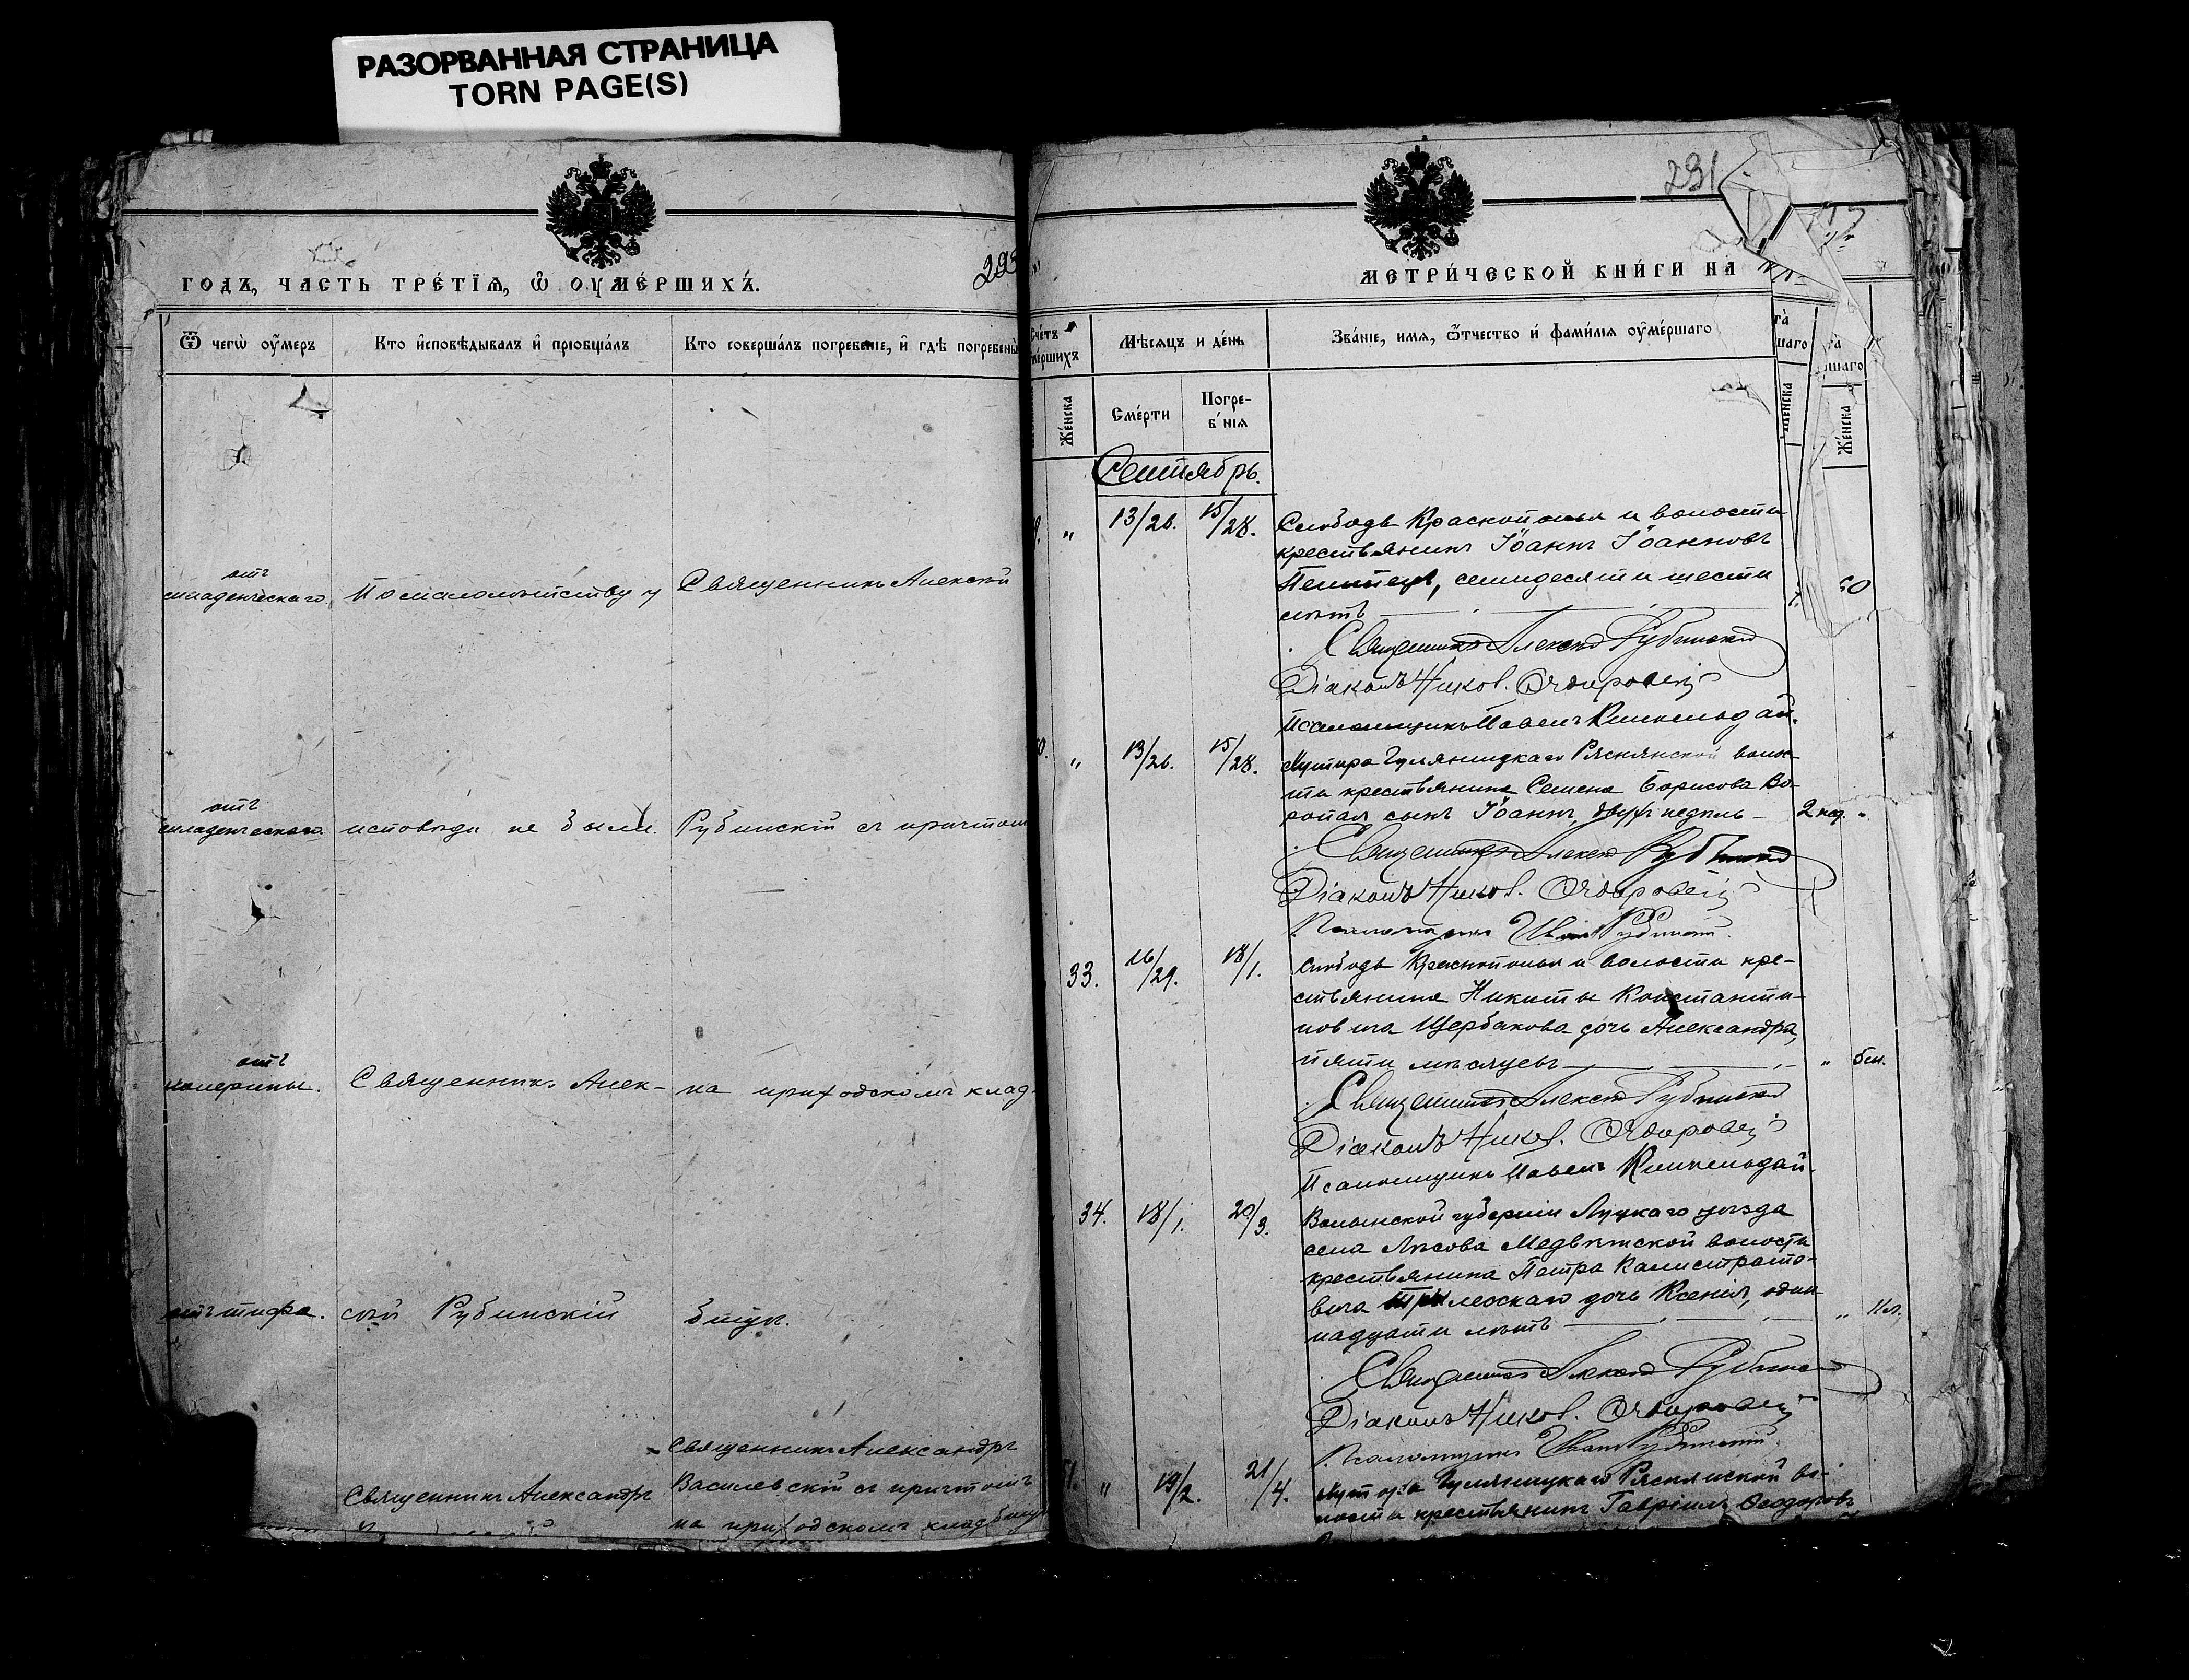 РАЗОРВАННАЯ СТРАНИЦА
TORN PAGE(S)
ГОДЪ, ЧАСТЬ ТРЕ́ТЇѦ, Ѡ ОУМЕ́РШИХЪ.
Ѿ чегѡ̀ оу҆́меръ
Кто и҆сповѣ́дывалъ и҆ прїѡбща́лъ
Кто соверша́лъ погребе́нїе, и҆ гдѣ̀ погребены̀
отъ
младенческаго.
По малолѣтству у
Священникъ Алексѣй
отъ
младенческаго
исповѣди не были.
Рубинскій съ причтом
отъ
холерины.
Священникъ Алек-
на приходскомъ клад-
отъ тифа.
сѣй Рубинскій
бищѣ.
Священникъ Александръ
Священникъ Александръ
Василевскій съ причтомъ
на приходскомъ кладбищѣ
291
МЕТРИ́ЧЕСКОЙ КНИ́ГИ НА̀
Сче́тъ
Мѣ́сѧцъ и де́нь
Зва́нїе, и́мѧ, ѻ҆́тчество и҆ фами́лїѧ оу҆ме́ршаго
Же́нска
Сме́рти
Погре-
бе́нїѧ
Же́нска
Сентябрь.
" 13/26. 15/28. Слободы Краснополья и волости
крестьянинъ Іоаннъ Іоанновъ
семидесяти шести
лѣтъ
Священникъ Алексѣй Рубинскій
Діаконъ Никол.
Псаломщикъ Павелъ
" 13/26. 15/28. Хутора Гуляницкаго Ряснянской волос-
ти крестьянина Семена Борисова Во-
ропая сынъ Іоаннъ, двухъ недѣль – 2 нед. "
Священникъ Алексѣй Рубинскій
Діаконъ Никол.
Псаломщикъ Иванъ Рубинскій.
33. 16/29. 18/1. Слободы Краснополья и волости кре-
стьянина Никиты Константи-
новича Щербакова дочь Александра,
пяти мѣсяцевъ " 5 м.
Священникъ Алексѣй Рубинскій
Діаконъ Никол.
Псаломщикъ Павелъ
34. 18/1. 20/3. Волынской губерніи Луцкаго уѣзда
села Лисова Медвѣжской волости
крестьянина Петра Калистрато-
вича дочь Ксенія, один
надцати лѣтъ " 11 л.
Священникъ Алексѣй Рубинскій
Діаконъ Никол.
Псаломщикъ Иванъ Рубинскій.
" 19/2. 21/4. Хутора Гуляницкаго Ряснянской во-
лости крестьянинъ Гавріилъ Ѳеодоровъ